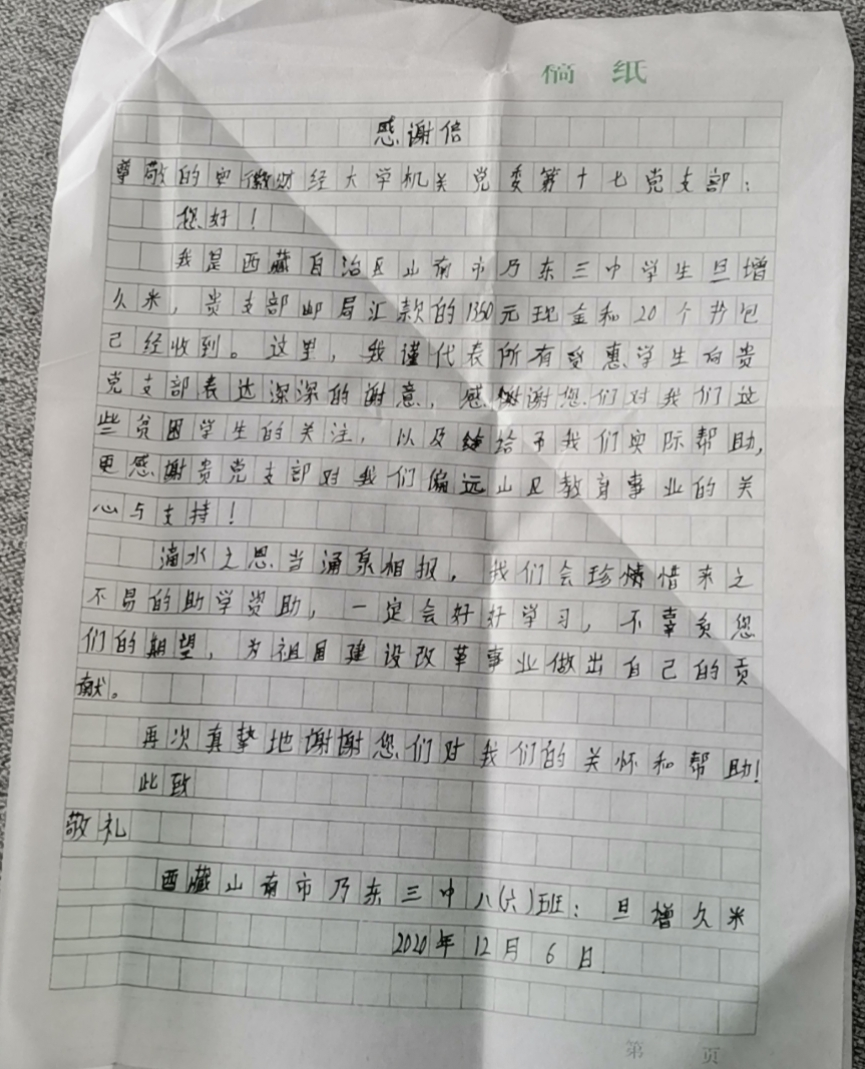 稿 纸
感谢信
尊敬的安徽财经大学机关党委第十七党支部：
您好！
我是西藏自治区山南市乃东三中学生旦增
久米，贵支部邮局汇款的1350元现金和20个书包
已经收到。这里，我谨代表所有受惠学生向贵
党支部表达深深的谢意，感谢谢您们对我们这
些贫困学生的关注，以及给予我们实际帮助，
更感谢贵党支部对我们偏远山区教育事业的关
心与支持！
滴水之恩当涌泉相报，我们会珍惜来之
不易的助学资助，一定会好好学习，不辜负您
们的期望，为祖国建设改革事业做出自己的贡
献。
再次真挚地谢谢您们对我们的关怀和帮助！
此致
敬礼
西藏山南市乃东三中八(六)班：旦增久米
2020年12月6日
第 页